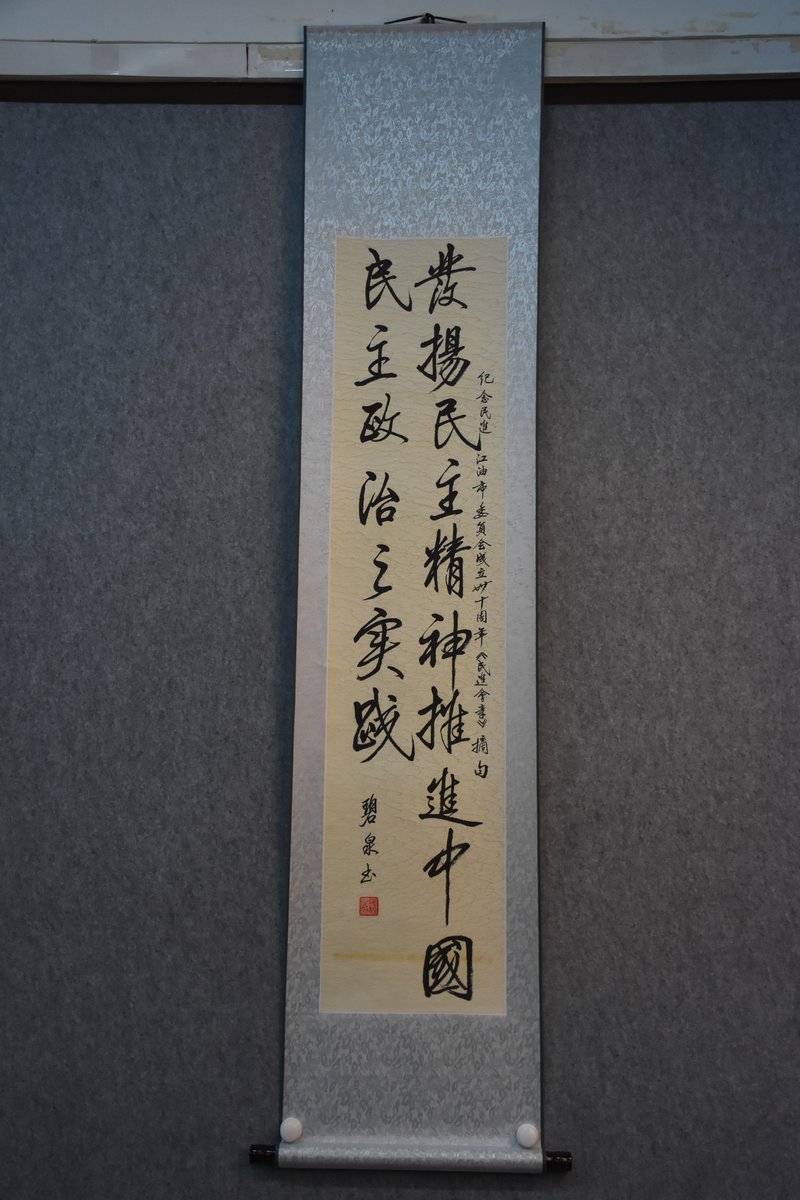 纪念民進江油市委員会成立卅十周年《民進会章》摘句
發揚民主精神推進中國
民主政治之实践
碧泉书